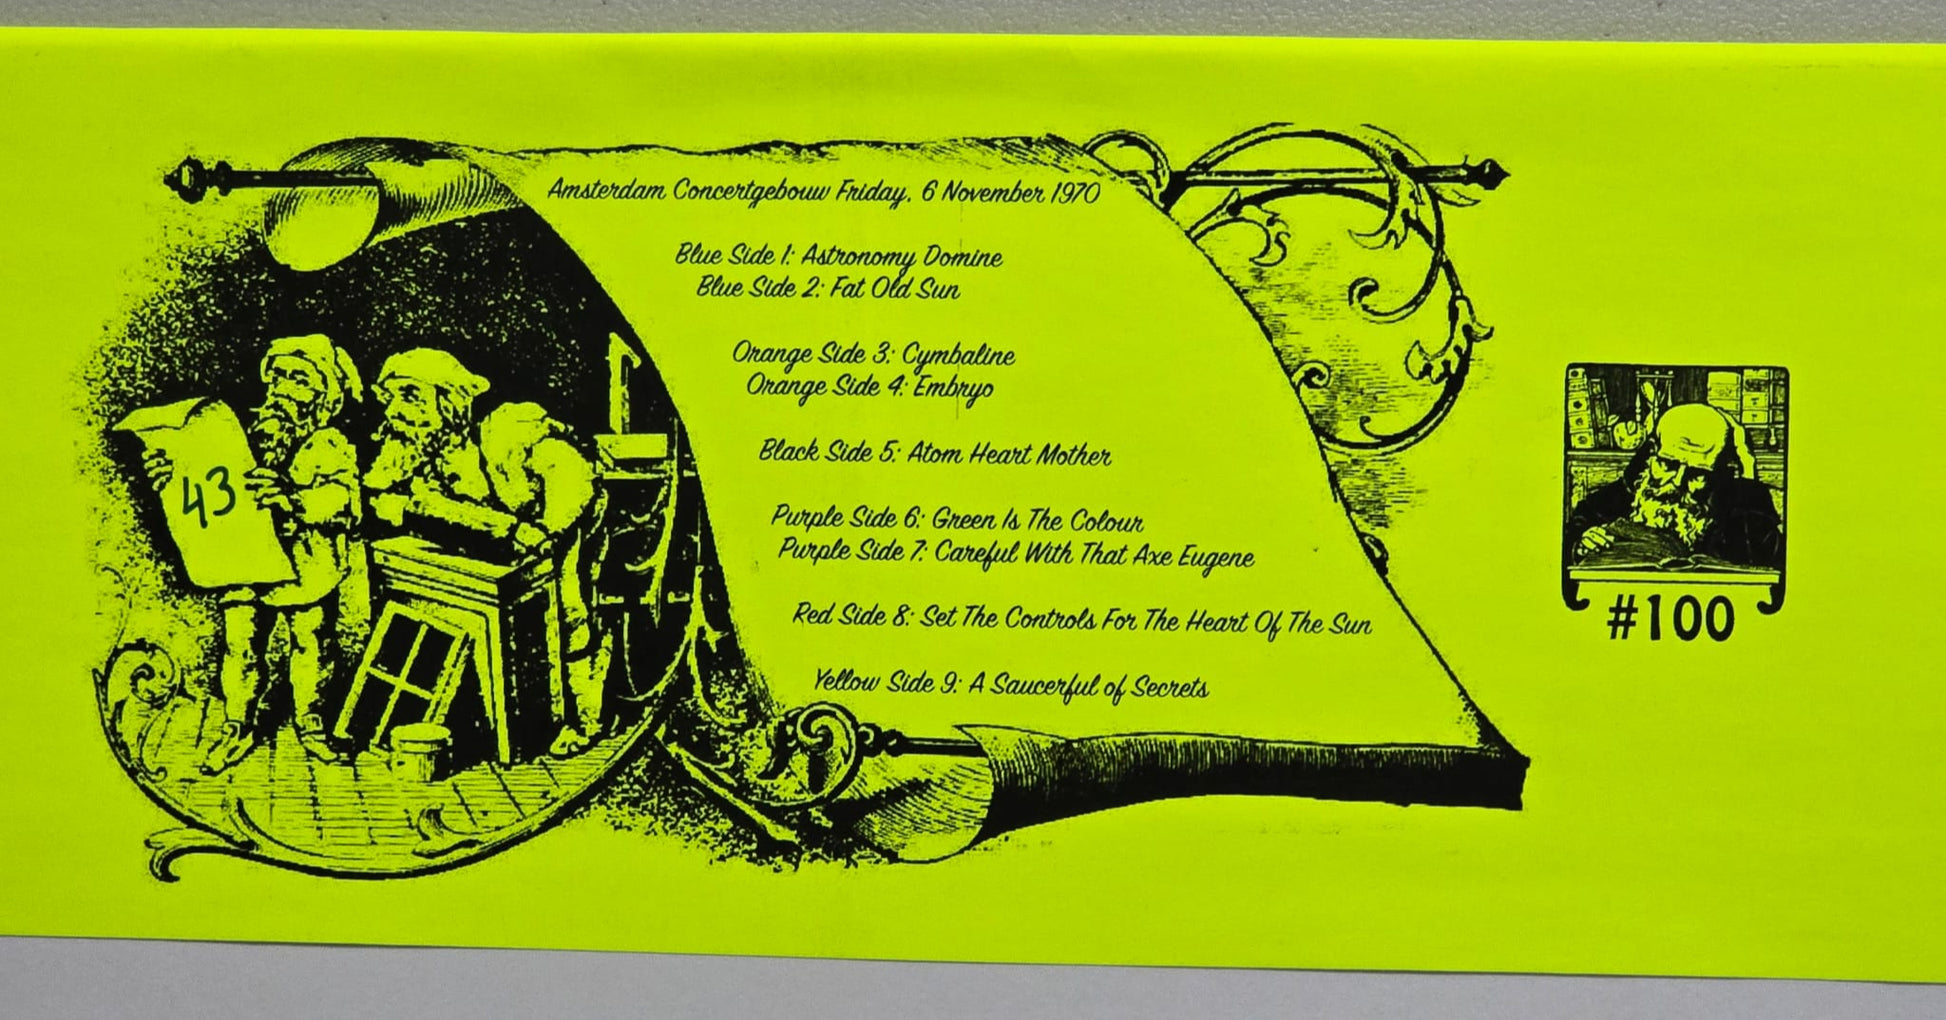 Amsterdam Concertgebouw Friday, 6 November 1970
Blue Side 1: Astronomy Domine
Blue Side 2: Fat Old Sun
Orange Side 3: Cymbaline
Orange Side 4: Embryo
Black Side 5: Atom Heart Mother
Purple Side 6: Green Is The Colour
Purple Side 7: Careful With That Axe Eugene
Red Side 8: Set The Controls For The Heart Of The Sun
Yellow Side 9: A Saucerful of Secrets
43
#100